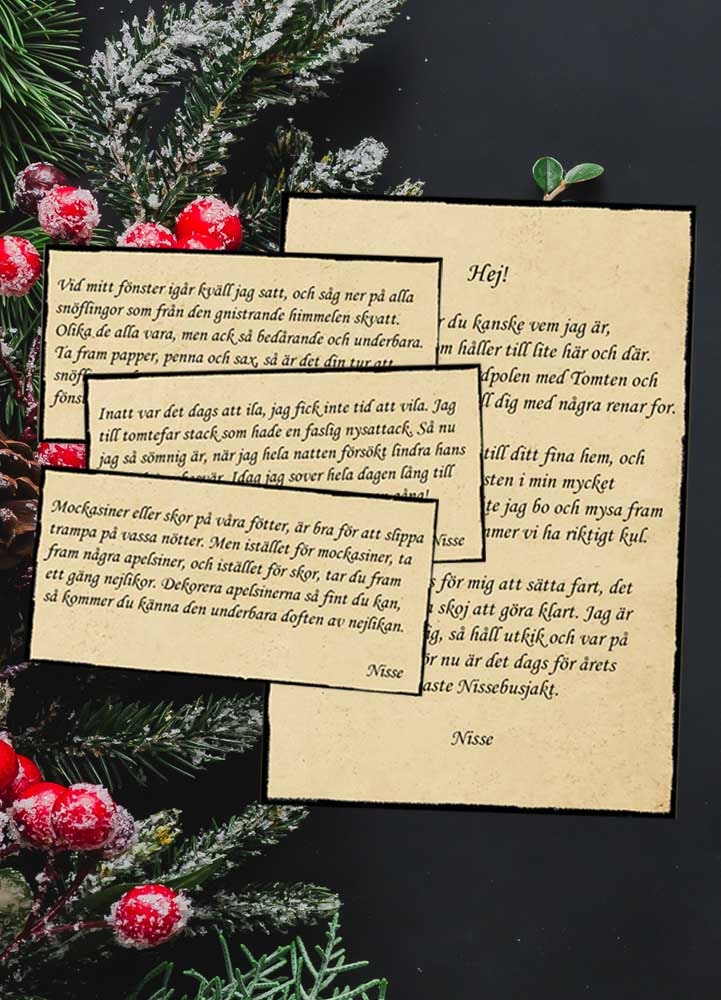 Vid mitt fönster igår kväll jag satt, och såg ner på alla
snöflingor som från den gnistrande himmelen skvatt.
Olika de alla vara, men ack så bedårande och underbara.
Ta fram papper, penna och sax, så är det din tur att
Inatt var det dags att ila, jag fick inte tid att vila. Jag
till tomtefar stack som hade en faslig nysattack. Så nu
jag så sömnig är, när jag hela natten försökt lindra hans
besvär. Idag jag sover hela dagen lång till
gång!
Nisse
Mockasiner eller skor på våra fötter, är bra för att slippa
trampa på vassa nötter. Men istället för mockasiner, ta
fram några apelsiner, och istället för skor, tar du fram
ett gäng nejlikor. Dekorera apelsinerna så fint du kan,
så kommer du känna den underbara doften av nejlikan.
Nisse
Hej!
du kanske vem jag är,
håller till lite här och där.
med Tomten och
dig med några renar for.
till ditt fina hem, och
i min mycket
jag bo och mysa fram
vi ha riktigt kul.
för mig att sätta fart, det
skoj att göra klart. Jag är
så håll utkik och var på
nu är det dags för årets
Nissebusjakt.
Nisse